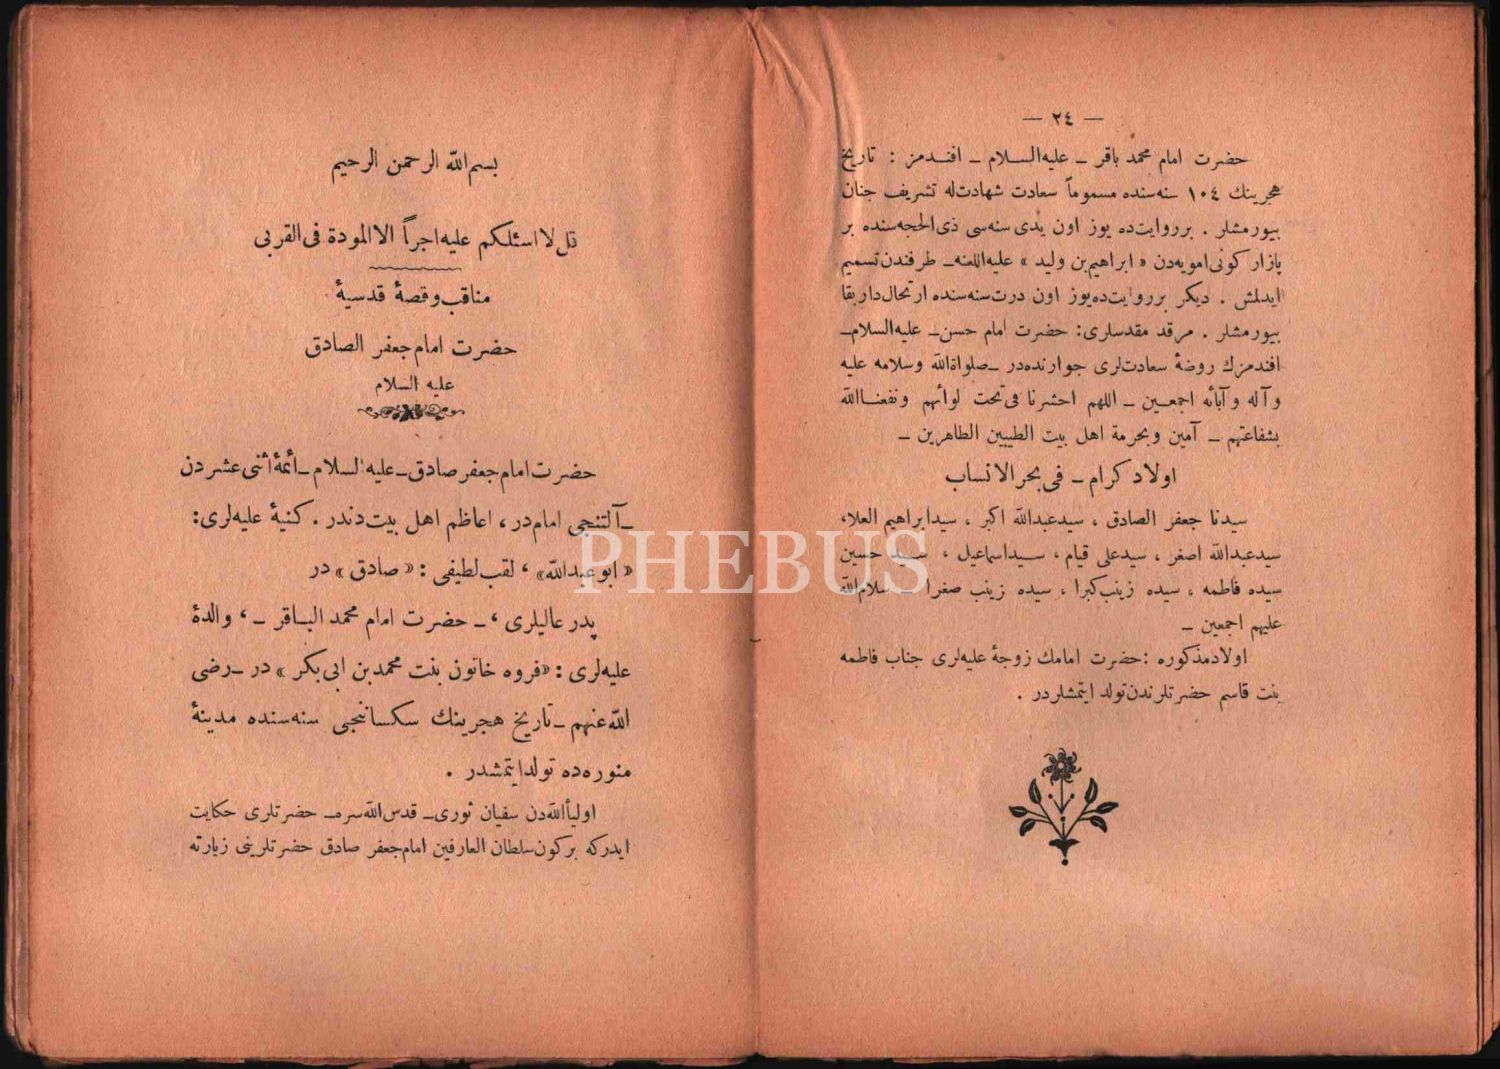 — ٢٤ —
حضرت امام محمد باقر ـ عليه السلام ـ افندمز : تاريخ
هجرينك ١٠٤ سنه سنده مسموماً سعادت شهادتله تشريف جنان
بيورمشلر . بر روايت ده يوز اون يدى سنه سى ذى الحجه سنده بر
پازار كونى امويه دن « ابراهيم بن وليد » عليه اللعنه ـ طرفندن تسميم
ايدلمش . ديكر بر روايت ده يوز اون درت سنه سنده ارتحال دار بقا
بيورمشلر . مرقد مقدسلرى : حضرت امام حسن ـ عليه السلام ـ
افندمزك روضهٔ سعادت لرى جوارنده در ـ صلواة الله وسلامه عليه
وآله وآبائه اجمعين ـ اللهم احشرنا فى تحت لوائهم ونفعنا الله
بشفاعتهم ـ آمين وبحرمة اهل بيت الطيبين الطاهرين ـ
اولاد كرام ـ فى بحر الانساب
سيدنا جعفر الصادق ، سيد عبدالله اكبر ، سيد ابراهيم العلا،
سيد عبدالله اصغر ، سيد على قيام ، سيد اسماعيل ، سيد حسين
سيده فاطمه ، سيده زينب كبرا ، سيده زينب صغرا ـ سلام الله
عليهم اجمعين ـ
اولاد مذكوره : حضرت امامك زوجهٔ عليه لرى جناب فاطمه
بنت قاسم حضرتلرندن تولد ايتمشلردر .
بسم الله الرحمن الرحيم
قل لا اسئلكم عليه اجراً الا المودة فى القربى
مناقب وقصهٔ قدسيهٔ
حضرت امام جعفر الصادق
عليه السلام
حضرت امام جعفر صادق ـ عليه السلام ـ ائمهٔ اثنى عشر دن
ـ آلتنجى امام در ، اعاظم اهل بيت دندر . كنيهٔ عليه لرى :
« ابو عبدالله » ، لقب لطيفى : « صادق » در
پدر عاليلرى ، ـ حضرت امام محمد الباقر ـ ، والدهٔ
عليه لرى : « فروه خاتون بنت محمد بن ابى بكر » در ـ رضى
الله عنهم ـ تاريخ هجرينك سكساننجى سنه سنده مدينهٔ
منوره ده تولد ايتمشدر .
اوليأ الله دن سفيان ثورى ـ قدس الله سره ـ حضرتلرى حكايت
ايدركه بركون سلطان العارفين امام جعفر صادق حضرتلرينى زيارته
PHEBUS